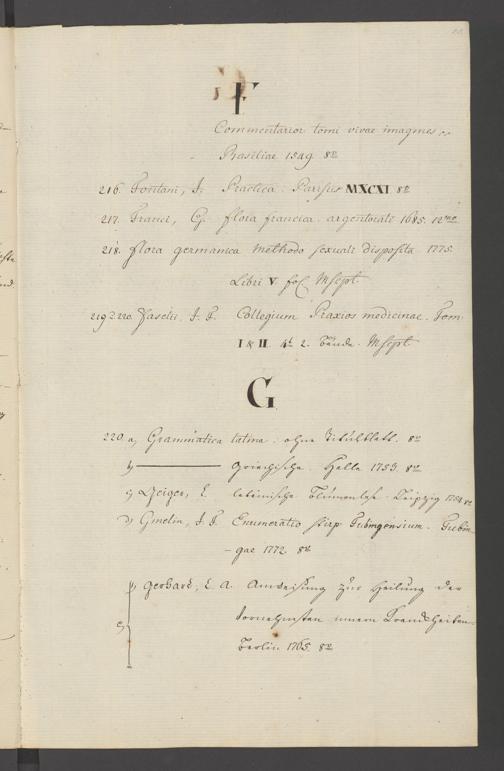 F
Commentarior tomi vivae imagines
Basiliae 1549 8º
216. Fontani, J. Practica. Parisus MXCXI 8º
217. Franci, G. flora francica. argentorati 1685. 12mo
218. flora germanica methodo sexuali disposita 1775.
Libri V. fol. Mscpt.
219 220. Faselii, J. F. Collegium Praxios medicinae. Tom.
I & II 4t 2. Bände. Mscpt
G
220. a, Grammatica latina. ohne Titulblatt. 8º
b, griechische. Halle 1753. 8º
c, Geiger, E. lateinische Blumenlese. Leipzig 8º
d, Gmelin, J. F. Enumeratio stirp Tubingensium. Tubin-
-gae 1772 8º
gerhard, C. A. Anweisung zur Heilung der
e, vornehmsten innern Krankheiten
Berlin 1765. 8º